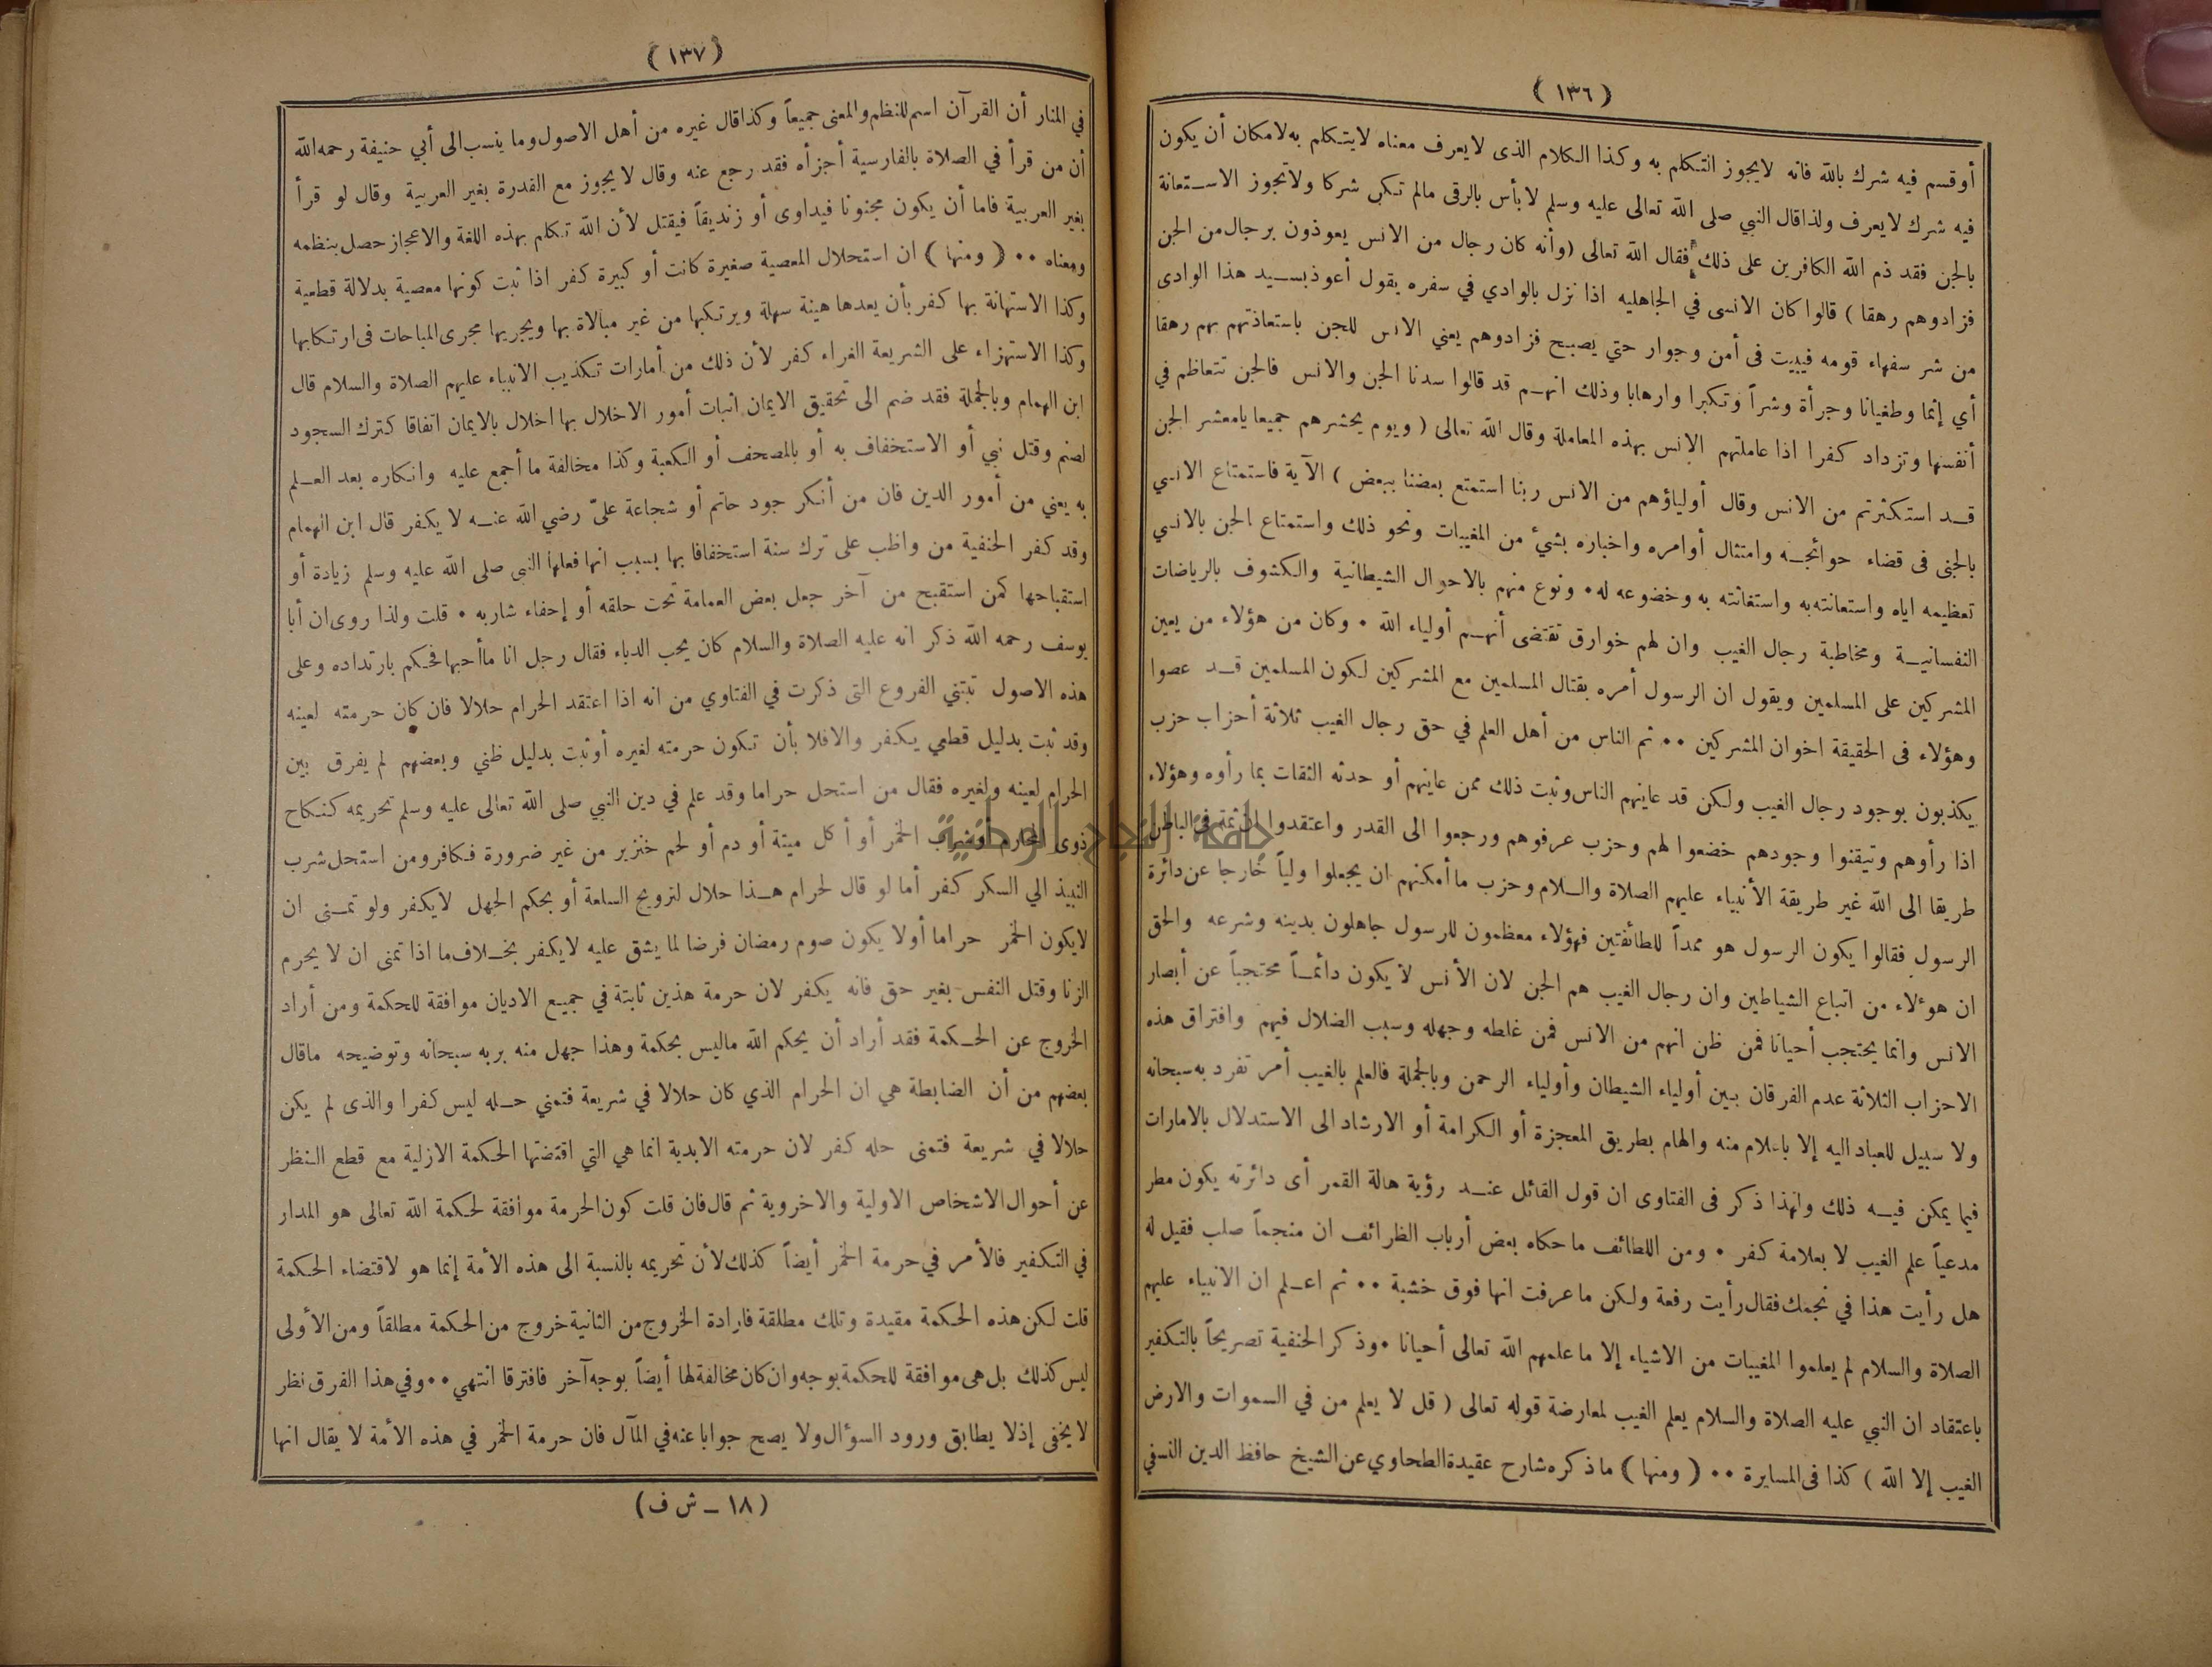 (١٣٦)
أوقسم فيه شرك بالله فانه لايجوز التكلم به وكذا الكلام الذى لايعرف معناه لايتكلم به لامكان أن يكون
فيه شرك لايعرف ولذاقال النبي صلى الله تعالى عليه وسلم لابأس بالرقى مالم تكن شركا ولاتجوز الاستعانة
بالجن فقد ذم الله الكافرين على ذلك فقال الله تعالى (وأنه كان رجال من الانس يعوذون برجال من الجن
فزادوهم رهقا) قالوا كان الانسى في الجاهليه اذا نزل بالوادي في سفره يقول أعوذ بسيد هذا الوادى
من شر سفهاء قومه فيبيت فى أمن وجوار حتي يصبح فزادوهم يعني الانس للجن باستعاذتهم بهم رهقا
أي إثما وطغيانا وجرأة وشراً وتكبرا وارهابا وذلك انهم قد قالوا سدنا الجن والانس فالجن تتعاظم في
أنفسها وتزداد كفرا اذا عاملتهم الانس بهذه المعاملة وقال الله تعالى (ويوم يحشرهم جميعا يامعشر الجن
قد استكثرتم من الانس وقال أولياؤهم من الانس ربنا استمتع بعضنا ببعض) الآية فاستمتاع الانسي
بالجنى فى قضاء حوائجه وامتثال أوامره واخباره بشئ من المغيبات ونحو ذلك واستمتاع الجن بالانسي
تعظيمه اياه واستعانته به واستغاثته به وخضوعه له٠ ونوع منهم بالاحوال الشيطانية والكشوف بالرياضات
النفسانية ومخاطبة رجال الغيب وان لهم خوارق تقتضى أنهم أولياء الله ٠ وكان من هؤلاء من يعين
المشركين على المسلمين ويقول ان الرسول أمره بقتال المسلمين مع المشركين لكون المسلمين قد عصوا
وهؤلاء فى الحقيقة اخوان المشركين ٠٠ ثم الناس من أهل العلم في حق رجال الغيب ثلاثة أحزاب حزب
يكذبون بوجود رجال الغيب ولكن قد عاينهم الناس وثبت ذلك ممن عاينهم أو حدثه الثقات بما رأوه وهؤلاء
اذا رأوهم وتيقنوا وجودهم خضعوا لهم وحزب عرفوهم ورجعوا الى القدر واعتقدوا ان ثمة فى الباطن
طريقا الى الله غير طريقة الأنبياء عليهم الصلاة والسلام وحزب ماأمكنهم ان يجعلوا ولياً خارجا عن دائرة
الرسول فقالوا يكون الرسول هو ممداً للطائفتين فهؤلاء معظمون للرسول جاهلون بدينه وشرعه والحق
ان هؤلاء من اتباع الشياطين وان رجال الغيب هم الجن لان الأنس لا يكون دائماً محتجباً عن أبصار
الانس وانما يحتجب أحيانا فمن ظن انهم من الانس فمن غلطه وجهله وسبب الضلال فيهم وافتراق هذه
الاحزاب الثلاثة عدم الفرقان بين أولياء الشيطان وأولياء الرحمن وبالجملة فالعلم بالغيب أمر تفرد به سبحانه
ولا سبيل للعباد اليه إلا باعلام منه والهام بطريق المعجزة أو الكرامة أو الارشاد الى الاستدلال بالامارات
فيما يمكن فيه ذلك ولهذا ذكر فى الفتاوى ان قول القائل عند رؤية هالة القمر أى دائرته يكون مطر
مدعياً علم الغيب لا بعلامة كفر ٠ ومن اللطائف ماحكاه بعض أرباب الظرائف ان منجماً صلب فقيل له
هل رأيت هذا في نجمك فقال رأيت رفعة ولكن ماعرفت انها فوق خشبة ٠٠ ثم اعلم ان الانبياء عليهم
الصلاة والسلام لم يعلموا المغيبات من الاشياء إلا ماعلمهم الله تعالى أحيانا ٠وذكر الحنفية تصريحاً بالتكفير
باعتقاد ان النبي عليه الصلاة والسلام يعلم الغيب لمعارضة قوله تعالى (قل لا يعلم من في السموات والارض
الغيب إلا الله) كذا فى المسايرة ٠٠ (ومنها) ماذكره شارح عقيدة الطحاوي عن الشيخ حافظ الدين النسفي
(١٣٧)
في المنار أن القرآن اسم للنظم والمعنى جميعاً وكذاقال غيره من أهل الاصول وما ينسب الى أبي حنيفة رحمه الله
أن من قرأ في الصلاة بالفارسية أجزأه فقد رجع عنه وقال لايجوز مع القدرة بغير العربية وقال لو قرأ
بغير العربية فاما أن يكون مجنونا فيداوى أو زنديقاً فيقتل لأن الله تكلم بهذه اللغة والاعجاز حصل بنظمه
ومعناه ٠٠ (ومنها) ان استحلال المعصية صغيرة كانت أو كبيرة كفر اذا ثبت كونها معصية بدلالة قطعية
وكذا الاستهانة بها كفر بأن يعدها هينة سهلة ويرتكبها من غير مبالاة بها ويجريها مجرى المباحات فى ارتكابها
وكذا الاستهزاء على الشريعة الغراء كفر لأن ذلك من أمارات تكذيب الانبياء عليهم الصلاة والسلام قال
ابن الهمام وبالجملة فقد ضم الى تحقيق الايمان اثبات أمور الاخلال بها اخلال بالايمان اتفاقا كترك السجود
لصنم وقتل نبي أو الاستخفاف به أو بالمصحف أو الكعبة وكذا مخالفة ماأجمع عليه وانكاره بعد العلم
به يعني من أمور الدين فان من أنكر جود حاتم أو شجاعة علىّ رضي الله عنه لا يكفر قال ابن الهمام
وقد كفر الحنفية من واظب على ترك سنة استخفافا بها بسبب انها فعلها النبى صلى الله عليه وسلم زيادة أو
استقباحها كمن استقبح من آخر جعل بعض العمامة تحت حلقه أو إحفاء شاربه ٠ قلت ولذا روى ان أبا
يوسف رحمه الله ذكر انه عليه الصلاة والسلام كان يحب الدباء فقال رجل انا ماأحبها فحكم بارتداده وعلى
هذه الاصول تبتني الفروع التى ذكرت في الفتاوي من انه اذا اعتقد الحرام حلالا فان كان حرمته لعينه
وقد ثبت بدليل قطعي يكفر والافلا بأن تكون حرمته لغيره أوثبت بدليل ظني وبعضهم لم يفرق بين
الحرام لعينه ولغيره فقال من استحل حراما وقد علم في دين النبي صلى الله تعالى عليه وسلم تحريمه كنكاح
ذوى المحارم أوشرب الخمر أو أكل ميتة أو دم أو لحم خنزير من غير ضرورة فكافر ومن استحل شرب
النبيذ الي السكر كفر أما لو قال لحرام هذا حلال لترويج السلعة أو بحكم الجهل لايكفر ولو تمنى ان
لايكون الخمر حراما أولا يكون صوم رمضان فرضا لما يشق عليه لايكفر بخلاف ما اذا تمنى ان لا يحرم
الزنا وقتل النفس بغير حق فانه يكفر لان حرمة هذين ثابتة في جميع الاديان موافقة للحكمة ومن أراد
الخروج عن الحكمة فقد أراد أن يحكم الله ماليس بحكمة وهذا جهل منه بربه سبحانه وتوضيحه ماقال
بعضهم من أن الضابطة هي ان الحرام الذي كان حلالا في شريعة فتمني حله ليس كفرا والذى لم يكن
حلالا في شريعة فتمنى حله كفر لان حرمته الابدية انما هي التي اقتضتها الحكمة الازلية مع قطع النظر
عن أحوال الاشخاص الاولية والاخروية ثم قال فان قلت كون الحرمة موافقة لحكمة الله تعالى هو المدار
في التكفير فالأمر في حرمة الخمر أيضاً كذلك لأن تحريمه بالنسبة الى هذه الأمة إنما هو لاقتضاء الحكمة
قلت لكن هذه الحكمة مقيدة وتلك مطلقة فارادة الخروج من الثانية خروج من الحكمة مطلقاً ومن الأولى
ليس كذلك بل هى موافقة للحكمة بوجه وان كان مخالفة لها أيضاً بوجه آخر فافترقا انتهي ٠٠ وفي هذا الفرق نظر
لا يخفى إذلا يطابق ورود السؤال ولا يصح جوابا عنه في المآل فان حرمة الخمر في هذه الأمة لا يقال انها
(١٨ ــ ش ف)
جامعة النجاح الوطنية